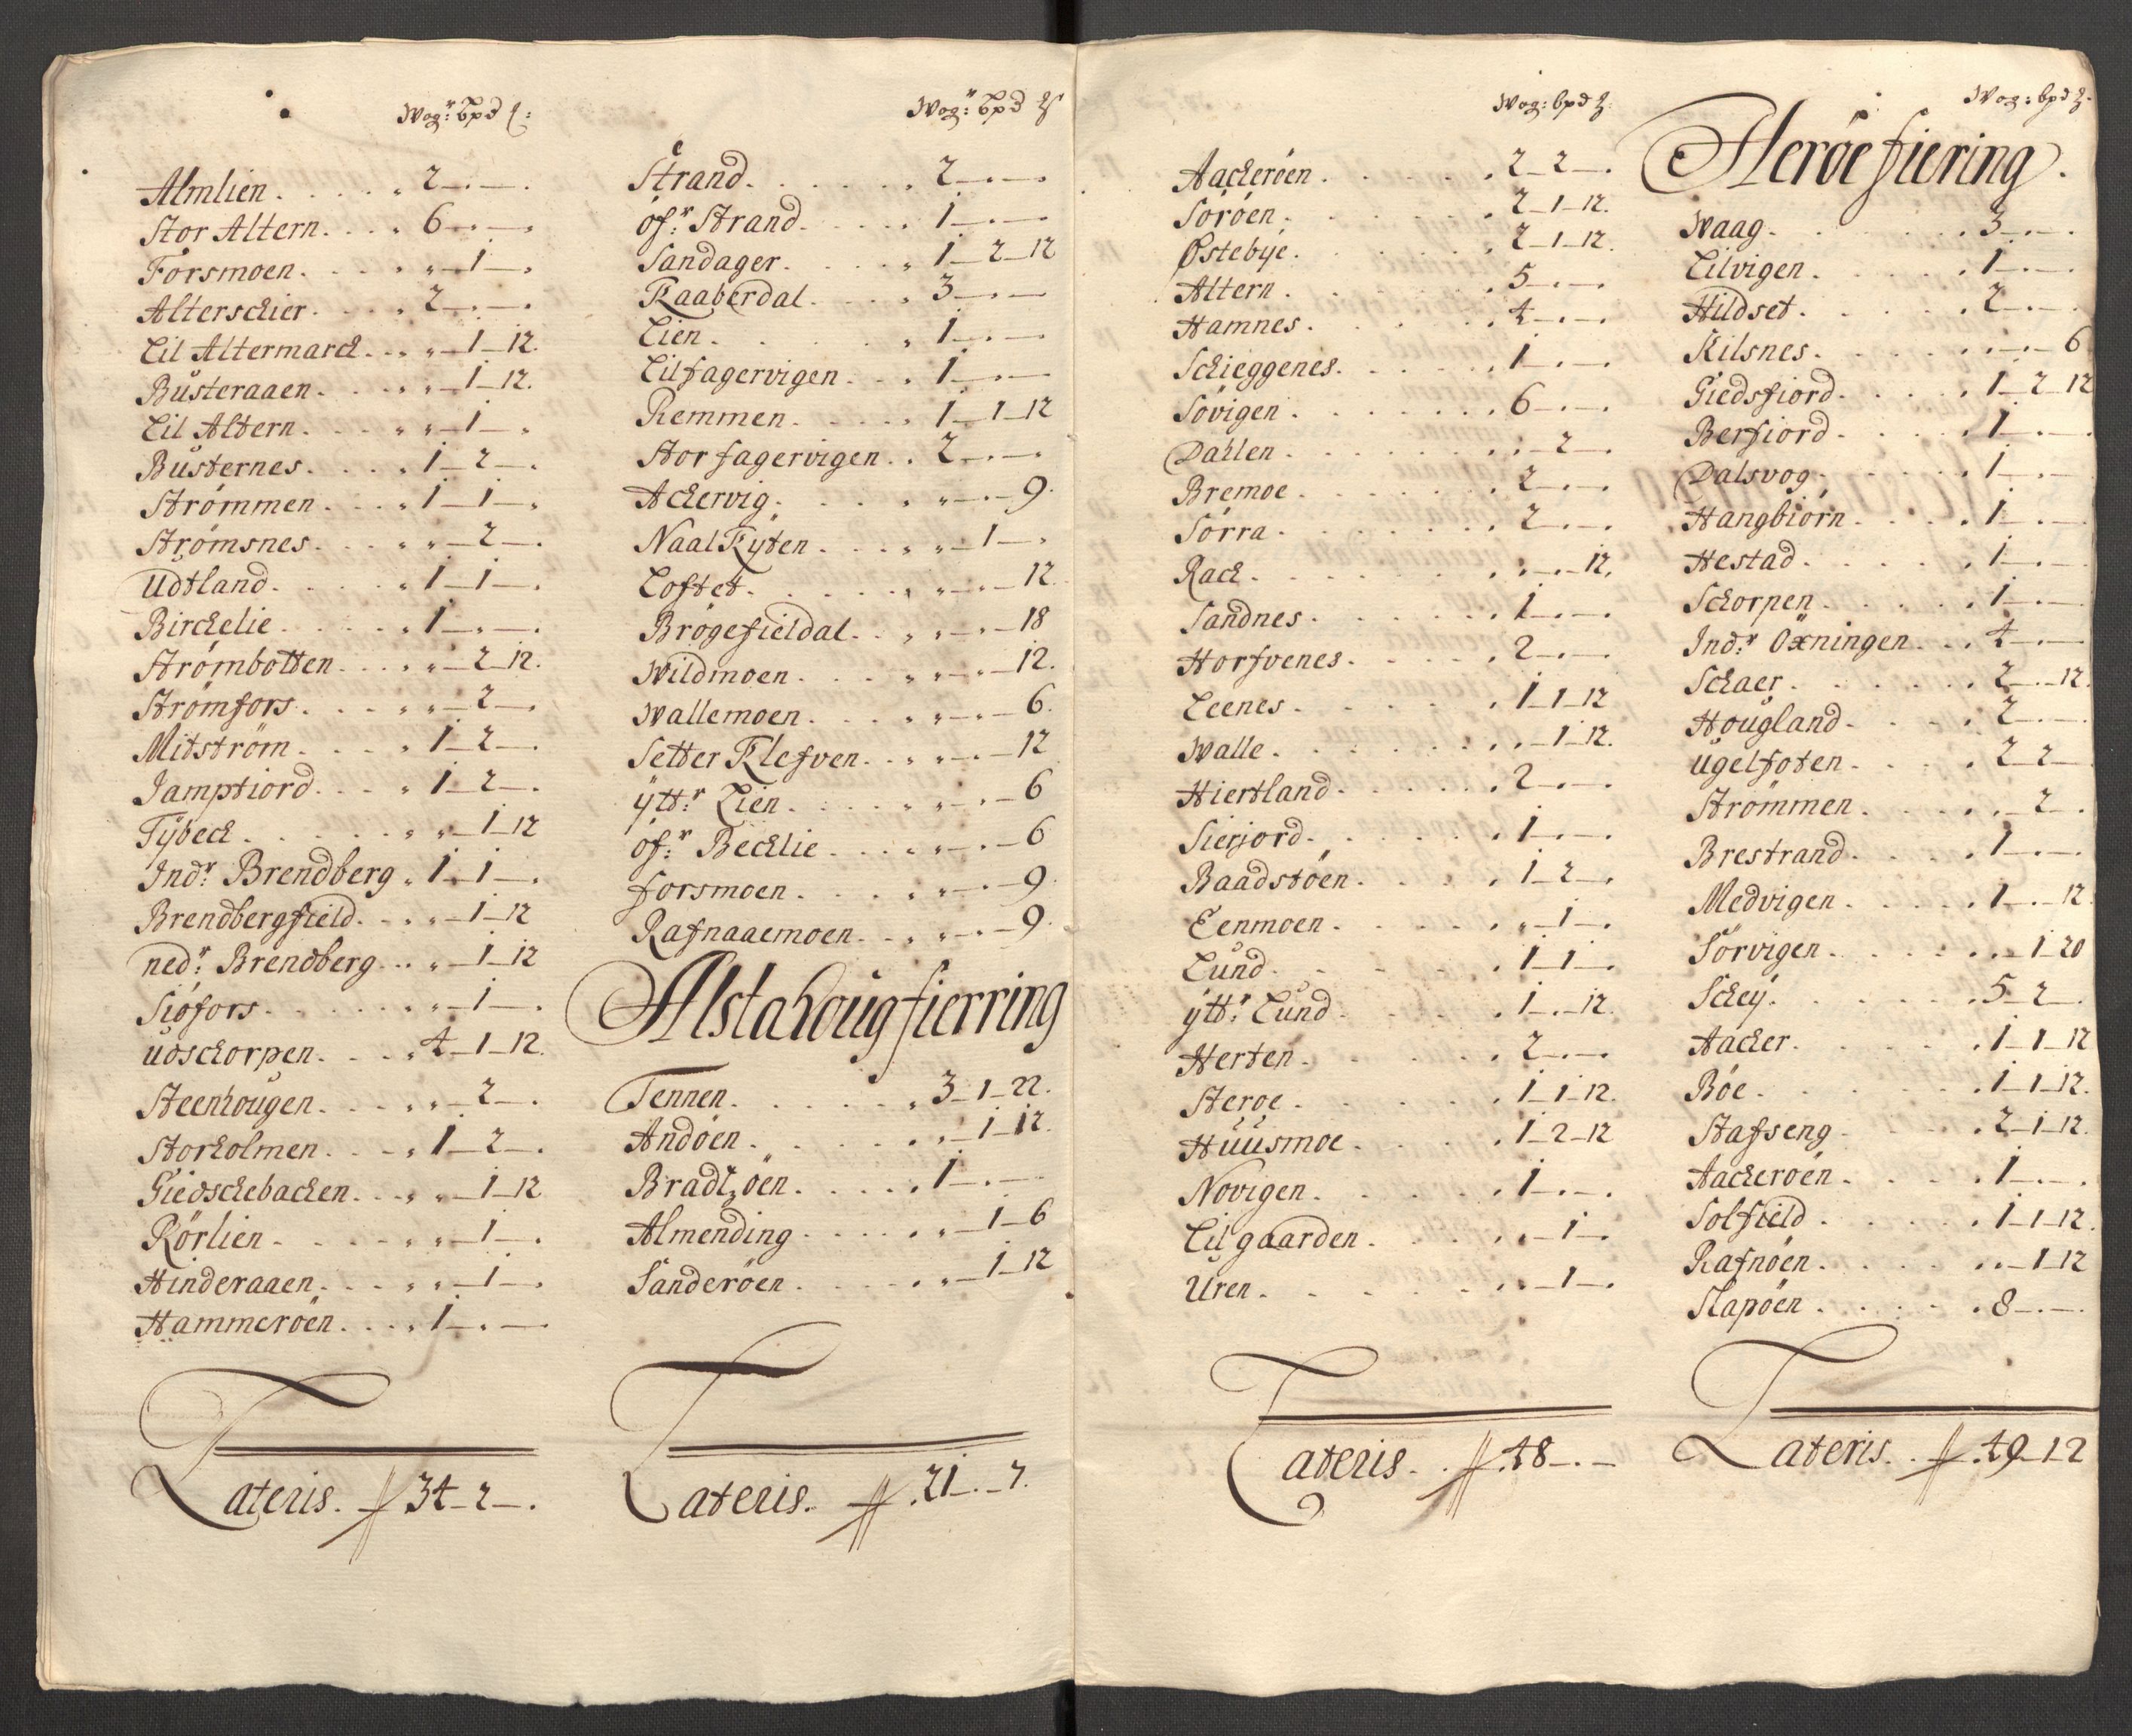 Wog: bpd
Almlien 2 - . - .
Stor Altern 6 - . - .
Forsmoen . - 1 - .
Alterschier 2 - . - .
Lil Altermarck . - 1 - 12.
Busteraaen . - 1 - 12.
Lil Altern . - 1 - .
Busternes 1 - 2 - .
Strømmen 1 - 1 - .
Strømsnes . - 2 - .
Udtland 1 - 1 - .
Birckelie 1 - . - .
Strømbotten . - 2 - 12.
Strømfors . - 2 - .
Mitstrøm 1 - 2 - .
Jamptiord 1 - 2 - .
Tybeck . - 1 - 12
Indr: Brendberg 1 - 1 - .
Brendbergfield . - 1 - 12
nedr: Brendberg . - 1 - 12
Siøfors . - 1 - .
Udschorpen 4 - 1 - 12.
Steenhougen . - 2 - .
Storholmen 1 - 2 - .
Giedschebacken . - 1 - 12
Rørlien . - 1 - .
Hinderaaen . - 1 - .
Hammerøen 1 - . - .
Lateris. 34 - 2 - .
Wog: bpd
Strand 2 - . -
øfr: Strand 1 - . -
Sandager 1 - 2 - 12
Kaaberdal 3 - . -
Lien 1 - . -
Lilfagervigen 1 - . -
Remmen 1 - 1 - 12
Storfagervigen 2 - . - .
Ackervig . - . - 9.
Naal Kyten . - 1 - .
Loftet . - . - 12.
Brøgefieldal . - . - 18
Wildmoen . - . - 12.
Wallemoen . - . - 6.
Setter Klefven . - . - 12
yttr: Lien . - . - 6
øfr: Becklie . - . - 6
forsmoen . - . - 9.
Rafnaaemoen . - . - 9.
Alstahougfierring
Tennen 3 - 1 - 22.
Andøen . - 1 - 12.
Bradtzøen 1 - . -
Almending . - 1 - 6
Sanderøen . - 1 - 12
Lateris. 21 - . - 7.
Wog: bpd
Aackerøen 2 - 2 - .
Sørøen 2 - 1 - 12.
Østebye 2 - 1 - 12.
Altern 5 - . - .
Hamnes 4 - . - .
Schieggenes 1 - . - .
Søvigen 6 - . - .
Dahlen . - 2 - .
Bremoe 2 - . - .
Sørra 2 - . - .
Rack . - . - 12.
Sandnes 1 - . - .
Horfvenes 2 - . - .
Leenes 1 - 1 - 12
Walle . - 1 - 12.
Hiertland 2 - . - .
Sierjord 1 - . - .
Baadstøen 1 - 2 - .
Eenmoen . - 1 - .
Lund 1 - 1 - .
yttr: Lund 1 - . - 12.
Herten 2 - . - .
Steroe 1 - 1 - 12.
Huusmoe 1 - 2 - 12
Novigen 1 - . - .
Lilgaarden . - 1 - .
Uren . - 1 - .
Lateris. 48 - . -
Wog: bpd
Herøe fiering.
Waag 3 - . - .
Lilvigen 1 - . -
Hildset 2 - . - .
Kilsnes . - . - 6
Giedsfiord 1 - 2 - 12
Berfiord 1 - . -
Dalsvog 1 - . -
Hangbiørn 1 - . -
Hestad 1 - . -
Schorpen 1 - . -
Indr: Oxningen 4 - . -
Schaer 2 - . - 12.
Hougland 2 - . -
Ugelfoten 2 - 2 -
Strømmen . - 2 - .
Brestrand 1 - . - .
Medvigen 1 - . - 12
Sørvigen . - 1 - 20
Schey 5 - 2 - .
Aacker 1 - 1 - 12
Bøe 1 - 1 - 12.
Stafseng 2 - 1 - 12.
Aackerøen 1 - . - .
Solfield 1 - 1 - 12.
Rafnøen . - 1 - 12
Slapøen 8 - . - .
Lateris. 49 - 1 2